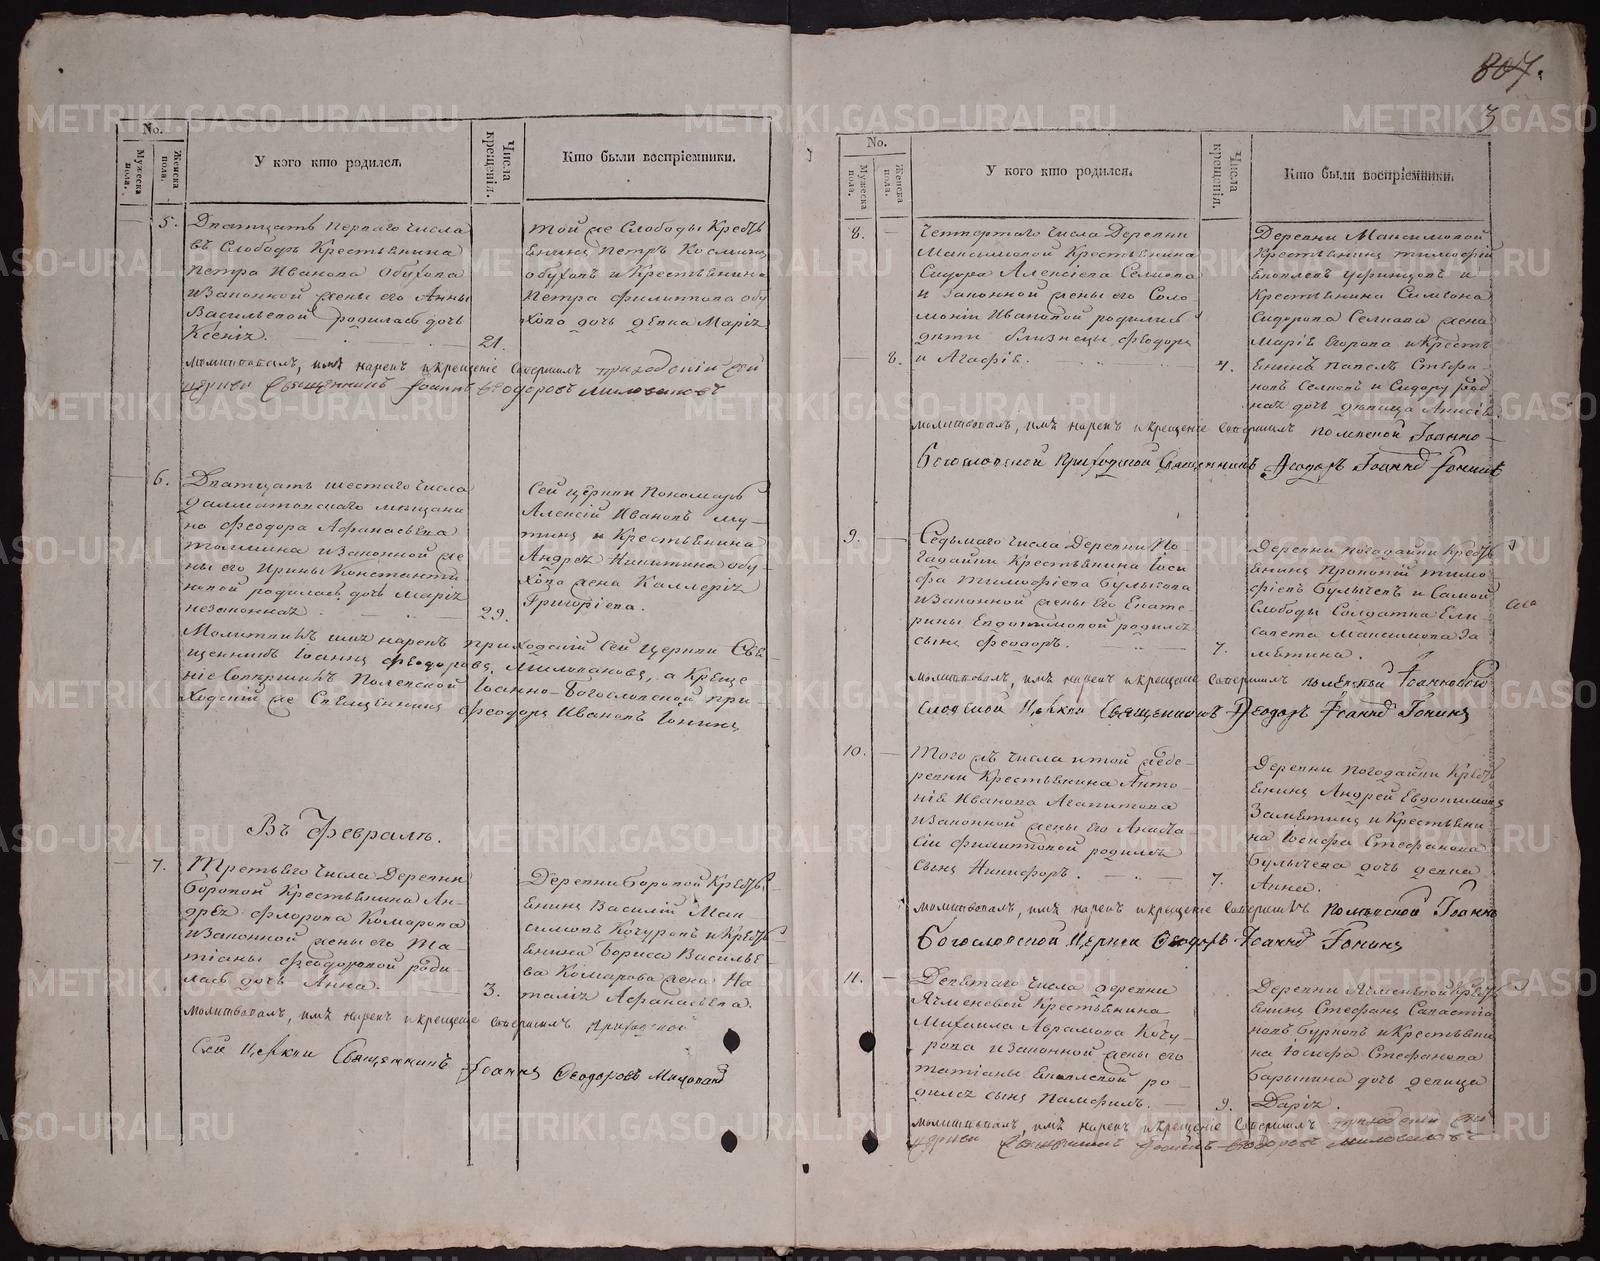 807.
3
No.
Мужеска пола.
Женска пола.
У кого кто родился.
Числа крещенія.
Кто были воспріемники.
5.
Дватцать перваго числа
въ Слободѣ Крестьянина
Петра Иванова Обухова
и законной жены его Анны
Васильевой родилась дочь
Ксенія.
21.
той же Слободы Кресть
янинъ Петръ Косминъ
Обуховъ и Крестьянина
Петра Филиппова Обу
хова дочь девка Марія
молитвовалъ, имя нарекъ и крещеніе совершилъ приходскій сей
церкви Священникъ Іоаннъ Ѳеодоровъ Миловановъ
6.
Дватцать шестаго числа
Далматовскаго мещани
на Феодора Афанасьева
и законной же
ны его Ирины Константи
новой родилась дочь Марія
незаконная
29.
Сей церкви Пономарь
Алексій Ивановъ Му
тинъ и Крестьянина
Андрея Никитина Обу
хова жена Каллерія
Григоріева.
Молитвилъ имя нарекъ приходскій сей церкви Свя
щенникъ Іоаннъ Феодоровъ Миловановъ, а креще
ніе совершилъ Полевской Іоанно-Богословской при
ходскій же Священникъ Феодоръ Ивановъ Іонинъ
Въ Февралѣ.
7.
Третьяго числа Деревни
Боровой Крестьянина Ан
дрея Флорова Комарова
и законной жены его Та
тіаны Феодоровой роди
лась дочь Анна.
3.
Деревни Боровой Кресть
янинъ Василій Мак
симовъ Кочуровъ и Кресть
янина Бориса Василье
ва Комарова жена На
талія Афанасьева.
молитвовалъ, имя нарекъ и крещеніе совершилъ Приходской
Сей Церкви Священникъ Іоаннъ Ѳеодоровъ Миловановъ
No.
Мужеска пола.
Женска пола.
У кого кто родился.
Числа крещенія.
Кто были воспріемники.
8.
Четвертаго числа Деревни
Максимовой Крестьянина
Сидора Алексіева Селпова
и законной жены его Соло
моніи Ивановой родились
дѣти близнецы Феодоръ
8.
и Агафія.
4.
Деревни Максимовой
Крестьянинъ Тимофій
и
Крестьянина Симеона
Сидорова жена
Марія Егорова и Кресть
янинъ Павелъ Стефа
новъ и Сидору род
ная дочь девица Анисія.
молитвовалъ, имя нарекъ и крещеніе совершилъ Полевской Іоанно-
Богословской Приходской Священникъ Ѳеодоръ Іоанновъ Іонинъ
9.
Седьмаго числа Деревни По
гадайки Крестьянина Іоси
фа Тимофіева Булычова
и законной жены его Екате
рины Евдокимовой родился
сынъ Феодоръ.
7.
Деревни Погадайки Кресть
янинъ Прокопій Тимо
фіевъ Булычевъ и самой
Слободы Солдатка Ели
савета Максимова За
мятина.
молитвовалъ, имя нарекъ и крещеніе совершилъ Полевской Іоанно Бого
словской Церкви Священникъ Ѳеодоръ Іоанновъ Іонинъ
10.
Того жъ числа и той же де
ревни Крестьянина Анто
нія Иванова Агапитова
и законной жены его Анаста
сіи Филиповой родился
сынъ Никифоръ.
7.
Деревни Погодайки Кресть
янинъ Андрей Евдокимовъ
Замятинъ и Крестьяни
на Іосифа Стефанова
Булычева дочь девка
Анна.
молитвовалъ, имя нарекъ и крещеніе совершилъ Полевской Іоанно
Богословской Церкви Ѳеодоръ Іоанновъ Іонинъ
11.
Девятаго числа деревни
Ячменевой Крестьянина
Михаила Аврамова Кочу
рова и законной жены его
Татіаны родился
сынъ Памфилъ.
9.
Деревни Ячменевой Кресть
янинъ Стефанъ Савастіа
новъ Бурковъ и Крестьяни
на Іосифа Стефанова
Барыкина дочь девица
Дарія.
молитвовалъ, имя нарекъ и крещеніе совершилъ приходскій сей
церкви Священникъ Іоаннъ Ѳеодоровъ Миловановъ